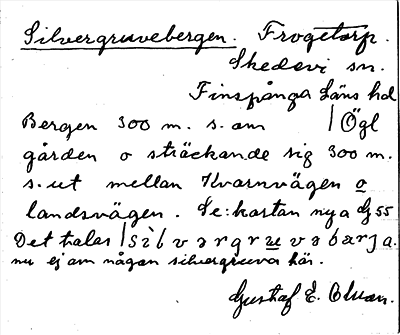 Silvergruvebergen. Frogetorp.
Skedevi sn.
Finspånga Läns hd
Bergen 300 m. s. om / Ögl
gården o sträckande sig 300 m.
s. ut mellan Kvarnvägen o
landsvägen. Se: kartan nya
Det talas
nu ej om någon silvergruva här.
Gustaf E.